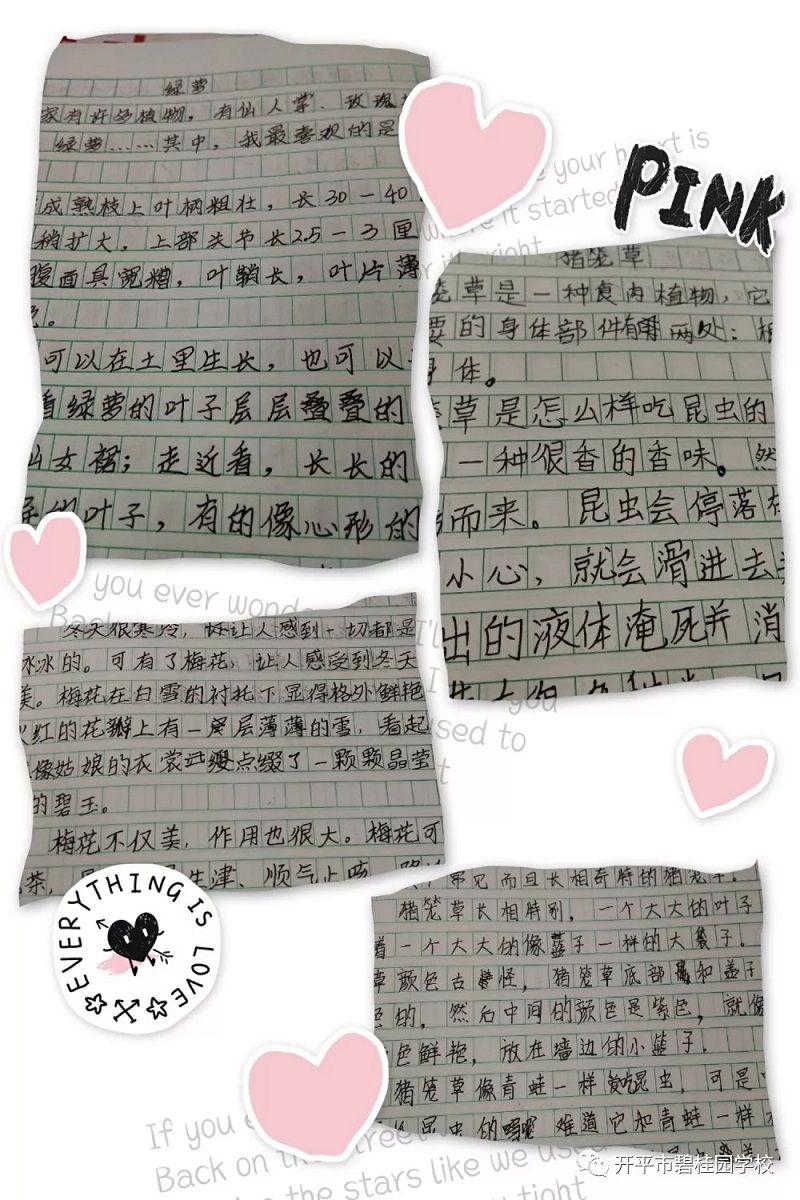 绿萝
家有许多植物，有仙人掌、玫瑰
绿萝……其中，我最喜欢的是
成熟枝上叶柄粗壮，长30-40
稍扩大，上部关节长2.5-3厘
腹面具宽糟，叶鞘长，叶片薄
。
可以在土里生长，也可以
着绿萝的叶子层层叠叠的
仙女裙；走近看，长长的
叶子，有的像心形的
PINK
猪笼草
笼草是一种食肉植物，它
要的身体部件有两处：根
身体。
笼草是怎么样吃昆虫的
一种很香的香味。然
而来。昆虫会停落
小心，就会滑进去
出的液体淹死并消
冬天很寒冷，让人感到一切都是
冰冰的。可有了梅花，让人感受到冬天
美。梅花在白雪的衬托下显得格外鲜艳
火红的花瓣上有一层薄薄的雪，看起
像姑娘的衣裳点缀了一颗颗晶莹
的碧玉。
梅花不仅美，作用也很大。梅花可
茶，生津、顺气止咳
EVERYTHING IS LOVE
而且长相奇特的猪笼草。
猪笼草长相特别，一个大大的叶子
着一个大大的像篮子一样的大袋子。
草颜色古怪，猪笼草底部和盖子
色的，然后中间的颜色是紫色，就像
色鲜艳，放在墙边的小篮子。
猪笼草像青蛙一样爱吃昆虫，可是
昆虫的嘴呢 难道它和青蛙一样
your heart is
it started
right
you ever wonde
Back
I'll
you
used to
If you e
Back on the street
the stars like we use
tight
开平市碧桂园学校